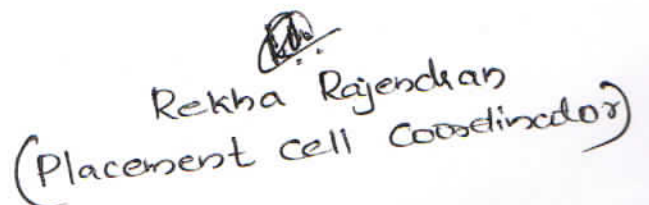 Rekha Rajendran
(Placement cell coordinator)